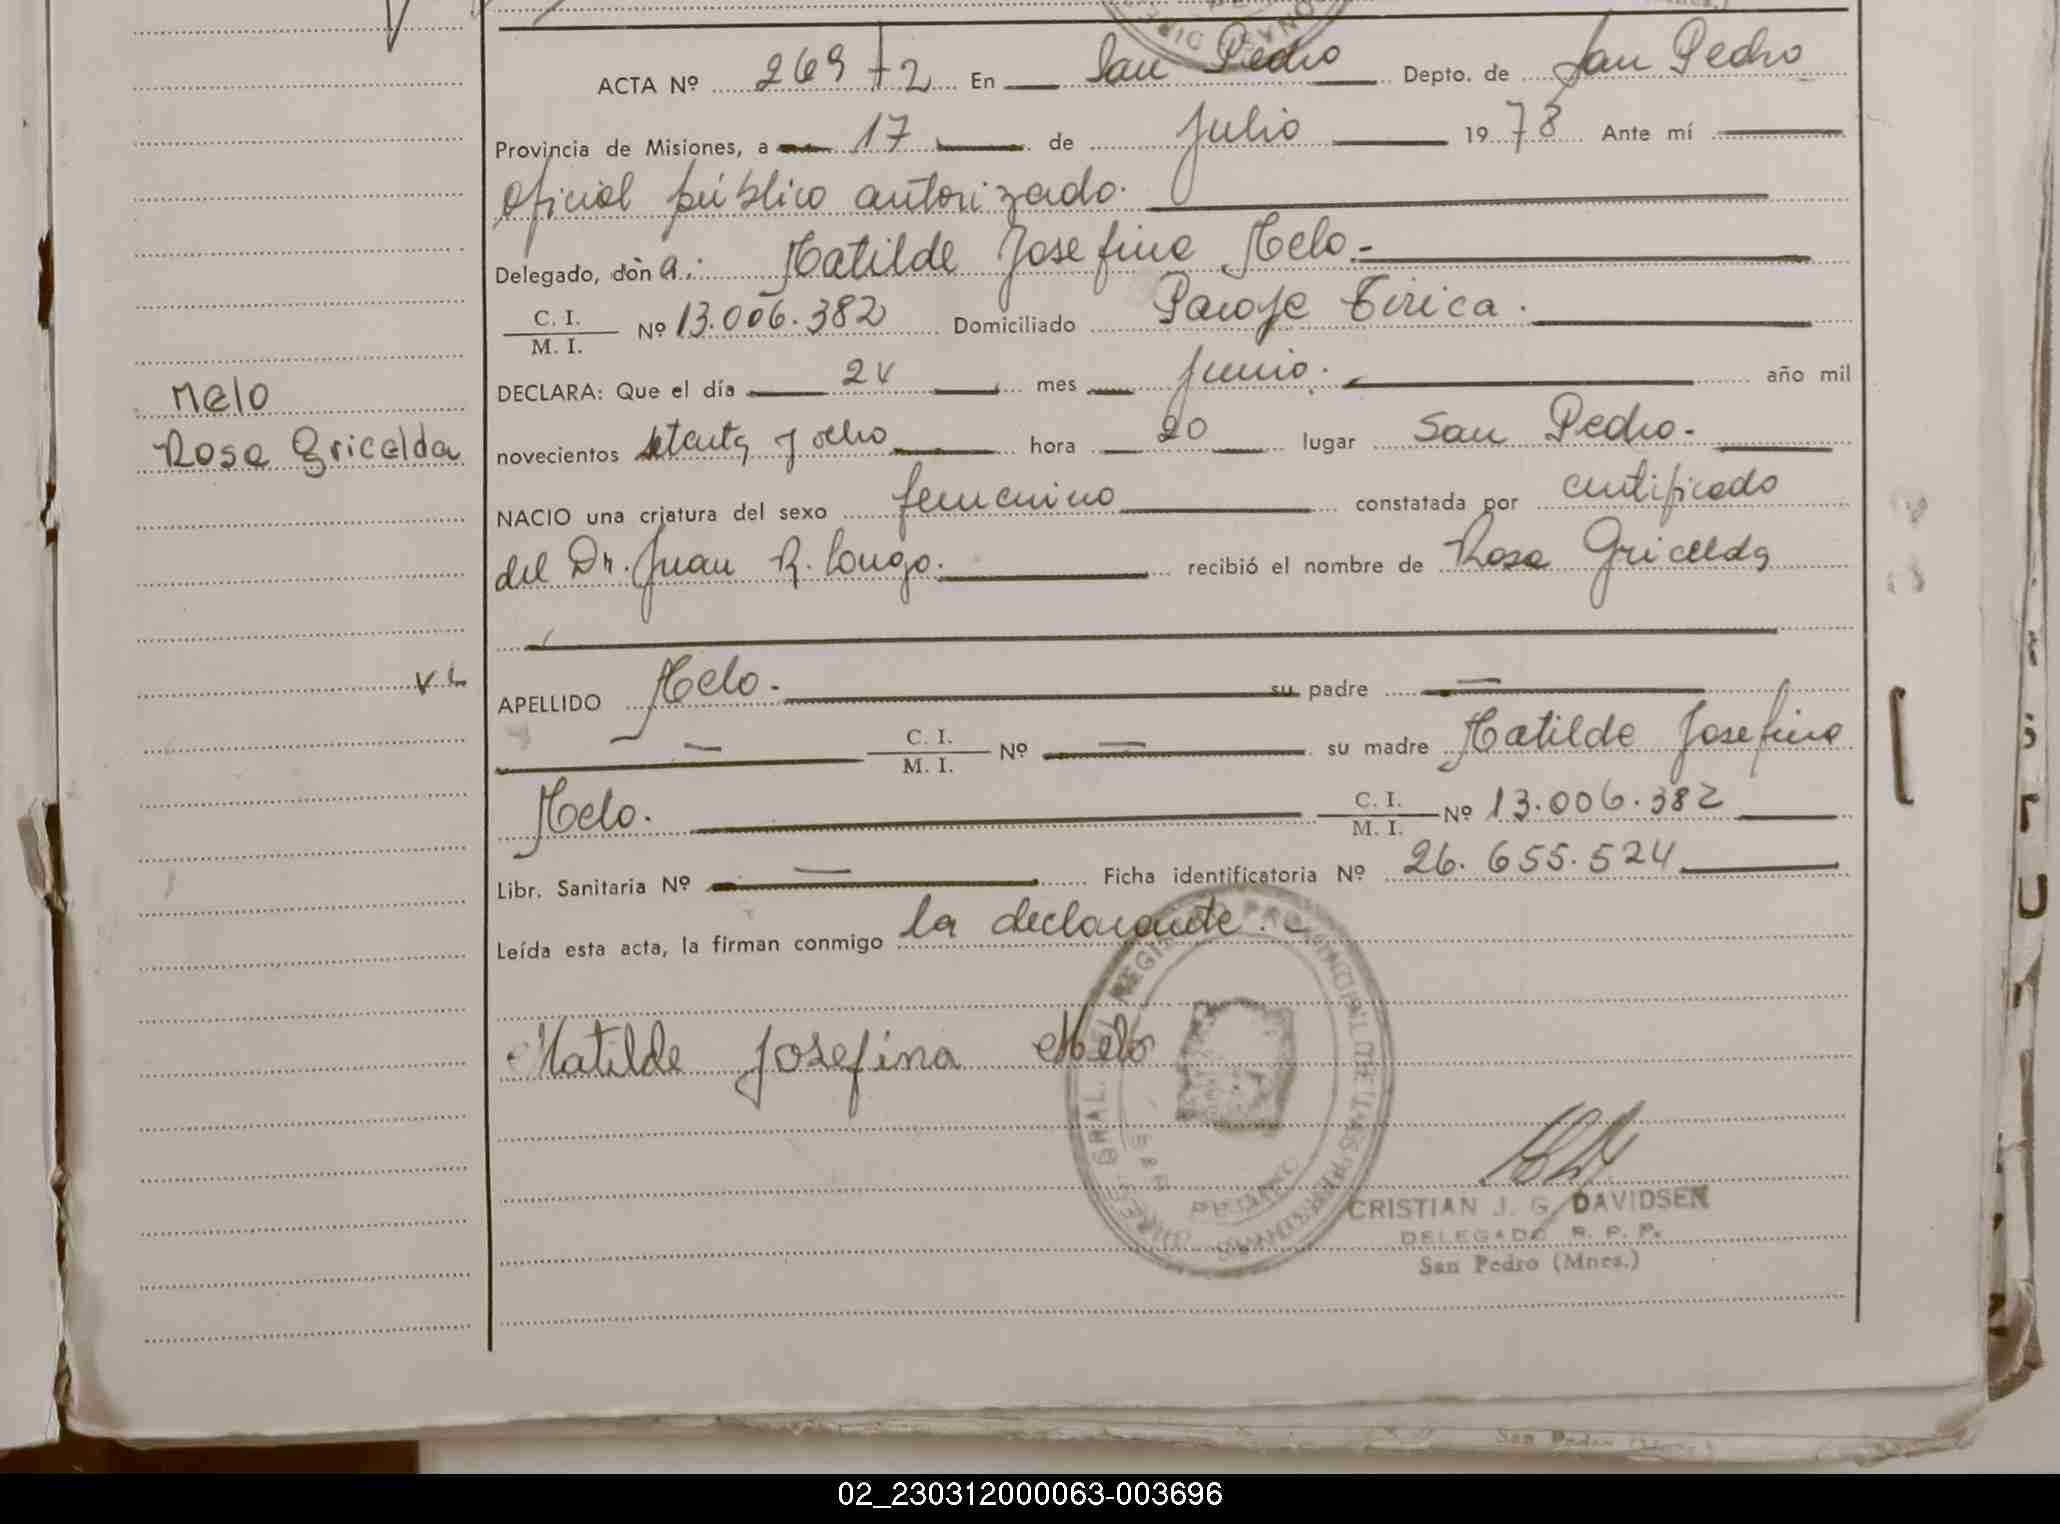 ACTA Nº 269 T2 En San Pedro Depto. de San Pedro
Provincia de Misiones, a 17 de Julio 1978 Ante mí
Oficial público autorizado.
Delegado, don a: Matilde Josefina Melo.-
C. I.
M. I. Nº 13.006.382 Domiciliado Paraje Tirica.
DECLARA: Que el día 24 mes junio. año mil
Melo
Rosa Gricelda
novecientos setenta y ocho hora 20 lugar San Pedro.-
NACIO una criatura del sexo femenino constatada por certificado
del Dr. Juan R. Longo. recibió el nombre de Rosa Gricelda
APELLIDO Melo. su padre —
— C. I.
M. I. Nº — su madre Matilde Josefina
Melo. C. I.
M. I. Nº 13.006.382
Libr. Sanitaria Nº — Ficha identificatoria Nº 26.655.524
Leída esta acta, la firman conmigo la declarante.
Matilde Josefina Melo
CRISTIAN J. G. DAVIDSEN
DELEGADO R. P. P.
San Pedro (Mnes.)
San Pedro (Mnes.)
02_230312000063-003696